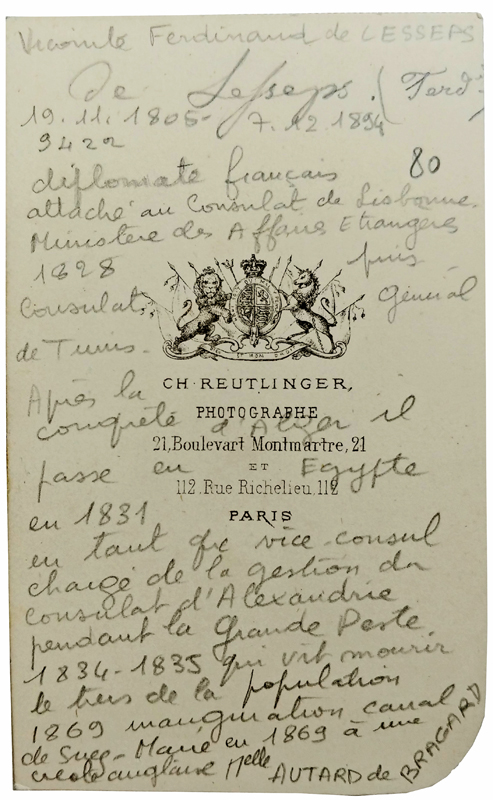 Vicomte Ferdinand de LESSEPS
De Lesseps. (Ferd
19.11.1805 - 7.12.1894
9422
80
diplomate français
attaché au Consulat de Lisbonne.
Ministère des Affaires Etrangères
1828 puis
Consulat Général
de Tunis.
ET MON
CH. REUTLINGER,
Après la
PHOTOGRAPHE
conquête d'Alger il
21, Boulevart Montmartre, 21
ET
passe en Egypte
112, Rue Richelieu, 112
en 1831
PARIS
en tant que vice-consul
chargé de la gestion du
consulat d'Alexandrie
pendant la Grande Peste
1834-1835 qui vit mourir
le tiers de la population
1869 inauguration canal
de Suez - Marié en 1869 à une
créole anglaise Melle AUTARD de BRAGARD